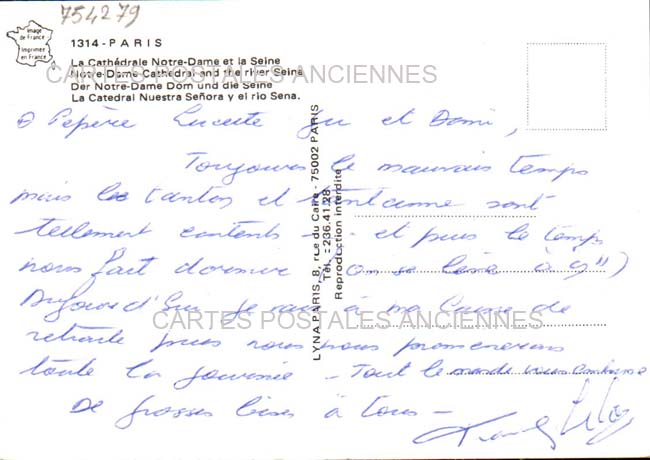 754279
Image
de France
Imprimée
en France
1314 - PARIS
La Cathédrale Notre-Dame et la Seine
Notre-Dame Cathedral and the river Seine
Der Notre-Dame Dom und die Seine
La Catedral Nuestra Señora y el rio Sena.
CARTES POSTALES ANCIENNES
Pepère Lucette et Domi,
Toujours le mauvais temps
mais les et sont
tellement contents - et puis le temps
nous fait dormir (on se lève à 9")
Aujourd'hui je vais à ma Caisse de
retraite puis nous nous promenerons
CARTES POSTALES ANCIENNES
toute la journée - Tout le monde vous embrasse
De grosses bises à tous -
LYNA-PARIS, 8, rue du Caire - 75002 PARIS
Tél. : 236.41.28
Reproduction interdite